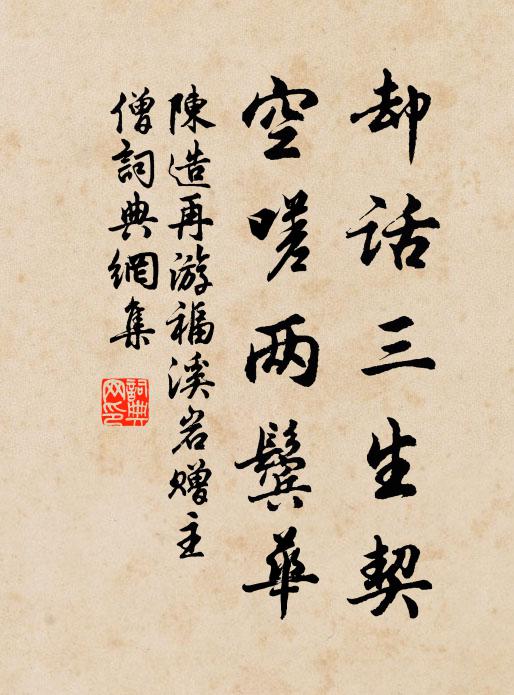 却话三生契
空嗟两鬓華
陳造再游福溪岩赠主
僧詞典網集
詞典
网印